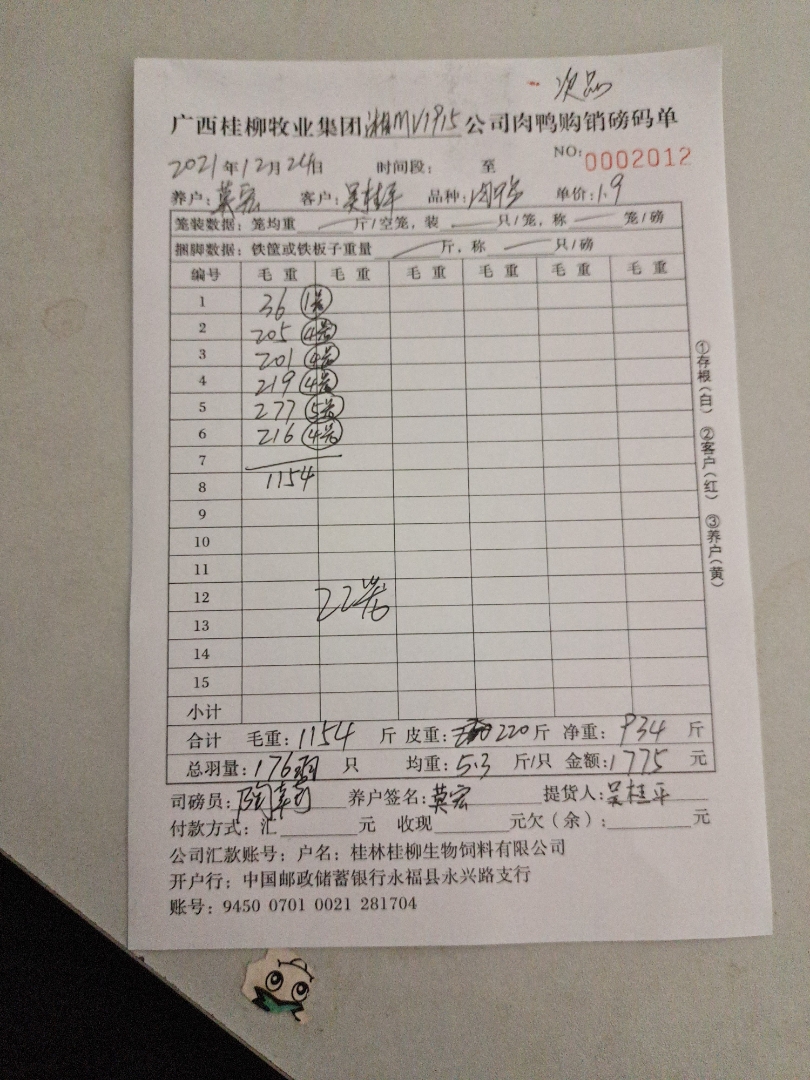 次品
广西桂柳牧业集团湘MV1915公司肉鸭购销磅码单
2021年12月24日 时间段: 至 NO: 0002012
养户:莫宏 客户:吴桂平 品种:肉鸭 单价:1.9
笼装数据: 笼均重 斤/空笼, 装 只/笼, 称 笼/磅
捆脚数据: 铁筐或铁板子重量 斤, 称 只/磅
编号 毛重 毛重 毛重 毛重 毛重 毛重
1 36 1笼
2 205 4笼
3 201 4笼
4 219 4笼
5 277 5笼
6 216 4笼
7
8 1154
9
10
11
12 22笼
13
14
15
小计
合计 毛重:1154 斤 皮重: 220斤 净重: 934 斤
总羽量:176羽 只 均重:5.3 斤/只 金额:1775 元
司磅员: 养户签名:莫宏 提货人:吴桂平
付款方式:汇 元 收现 元欠(余): 元
公司汇款账号: 户名: 桂林桂柳生物饲料有限公司
开户行: 中国邮政储蓄银行永福县永兴路支行
账号: 9450 0701 0021 281704
①存根(白) ②客户(红) ③养户(黄)